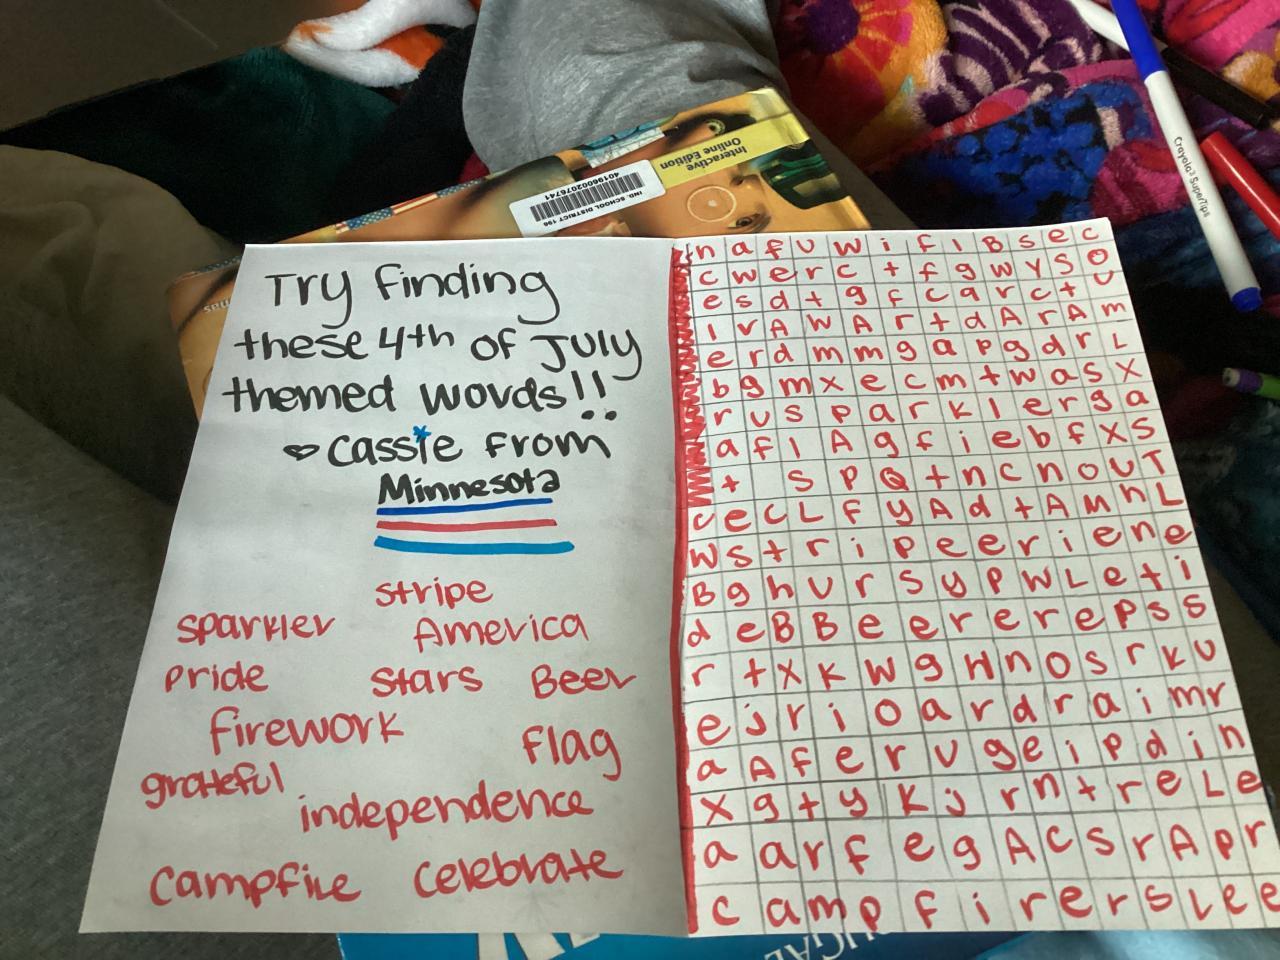 Interactive
Online Edition
IND. SCHOOL DISTRICT 196
4019600207674
Crayola SuperTips
Try finding
these 4th of July
themed words!!
Cassie from
Minnesota
stripe
sparkler America
pride stars Beer
firework flag
grateful
independence
campfire celebrate
n a f u w i f l B s e c
c w e r c t f g w y s o
e s d t g f c a r c t u
l r A w A r t d A r A m
e r d m m g a p g d r L
b g m x e c m t w a s x
r u s p a r k l e r g a
a f l A g f i e b f x s
t s p Q t n c n o u T
c e c L f y A d t A m n L
w s t r i p e e r i e n e
B g h u r s y p w L e t i
d e B B e e r e r e p s s
r t x k w g H n o s r k u
e j r i o a r d r a i m r
a A f e r u g e i p d i n
x g t y k j r n t r e L e
a a r f e g A c s r A p r
c a m p f i r e r s L e e